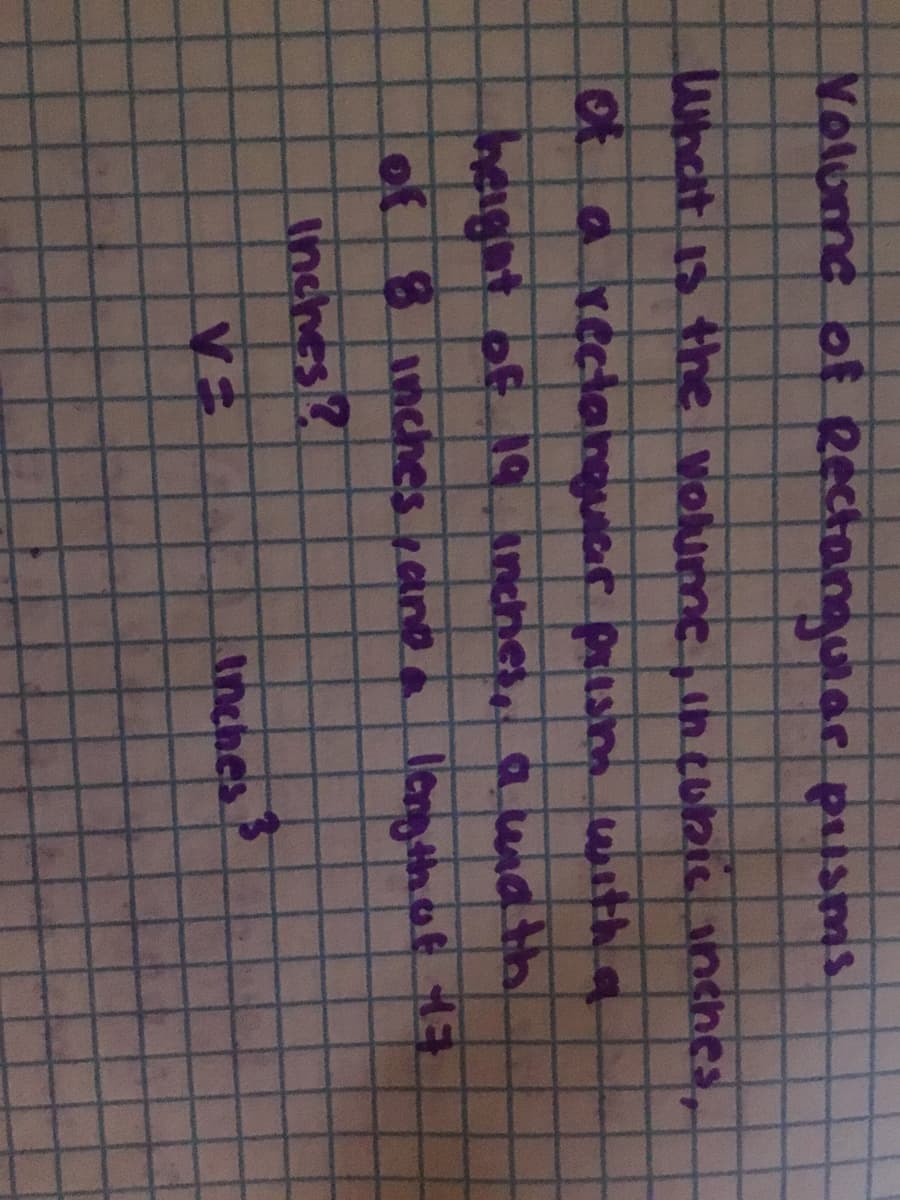 Volume of Rectangular prisms
What is the volume, in cubic inches,
of a rectangular prism with a
height of 19 inches, a width
of 8 inches, and a length of 17
inches?
V= inches³